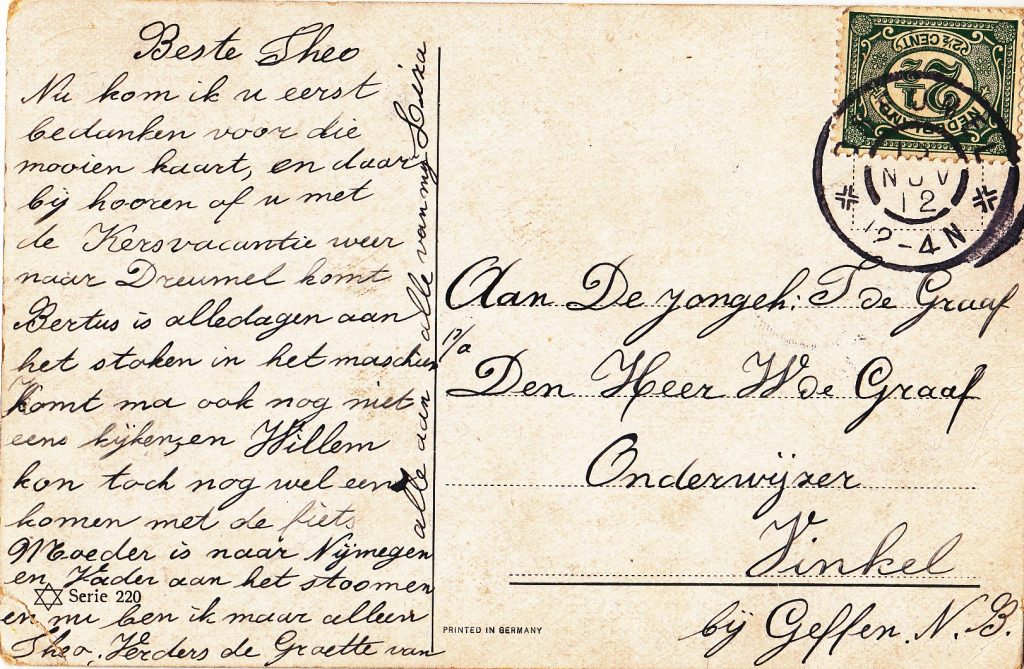 Beste Theo
Nu kom ik u eerst
bedanken voor die
mooien kaart, en daar
bij hooren of u met
de Kersvacantie weer
naar Dreumel komt
Bertus is alledagen aan
het stoken in het maschien
Komt ma ook nog niet
eens kijken, en Willem
kon toch nog wel eens
komen met de fiets
Moeder is naar Nijmegen
en Vader aan het stoomen
en nu ben ik maar alleen
Theo, Verders de Groette van
alle aan alle van my Liza
Serie 220
PRINTED IN GERMANY
2½ CENT
NEDERLAND
2½
NOV
12
12-4N
Aan De jongeh: T de Graaf
p/a
Den Heer W de Graaf
Onderwijzer
Vinkel
bij Geffen. N. B.